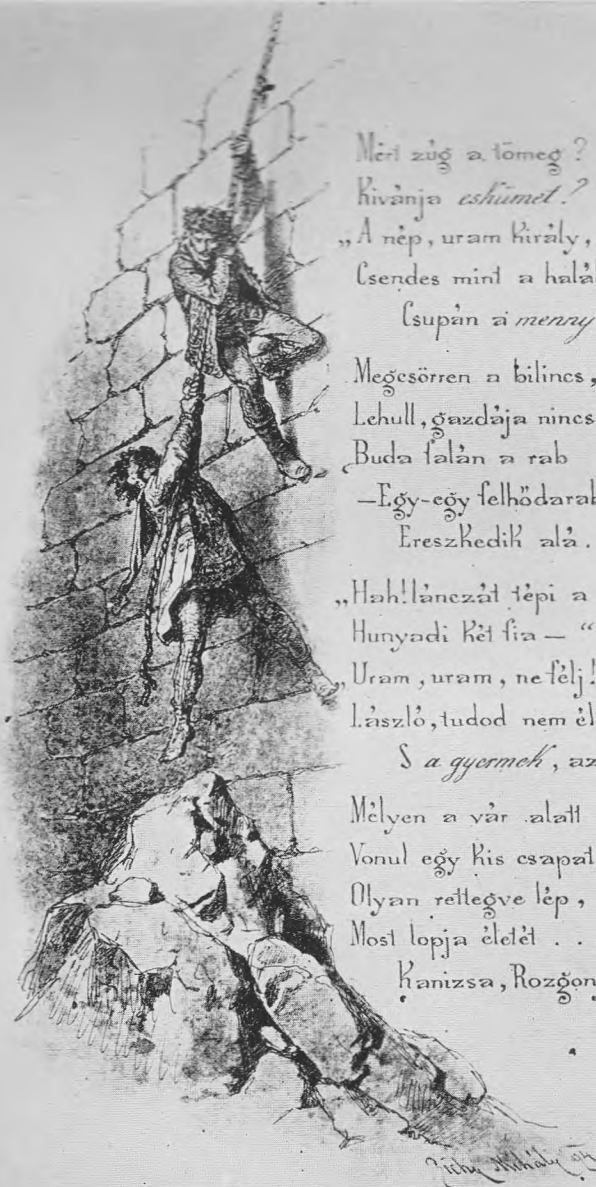 Mért zúg a tömeg ?
Kivánja eskümet ?
„A nép, uram király,
Csendes mint a halál
Csupán a menny
Megcsörren a bilincs,
Lehull, gazdája nincs
Buda falán a rab
—Egy-egy felhődarab
Ereszkedik alá .
„Hah! lánczát tépi a
Hunyadi két fia — “
„Uram, uram, ne félj!
László, tudod nem él
S a gyermek, az
Mélyen a vár alatt
Vonul egy kis csapat
Olyan rettegve lép,
Most lopja életét . .
Kanizsa, Rozgony
Zichy Mihály